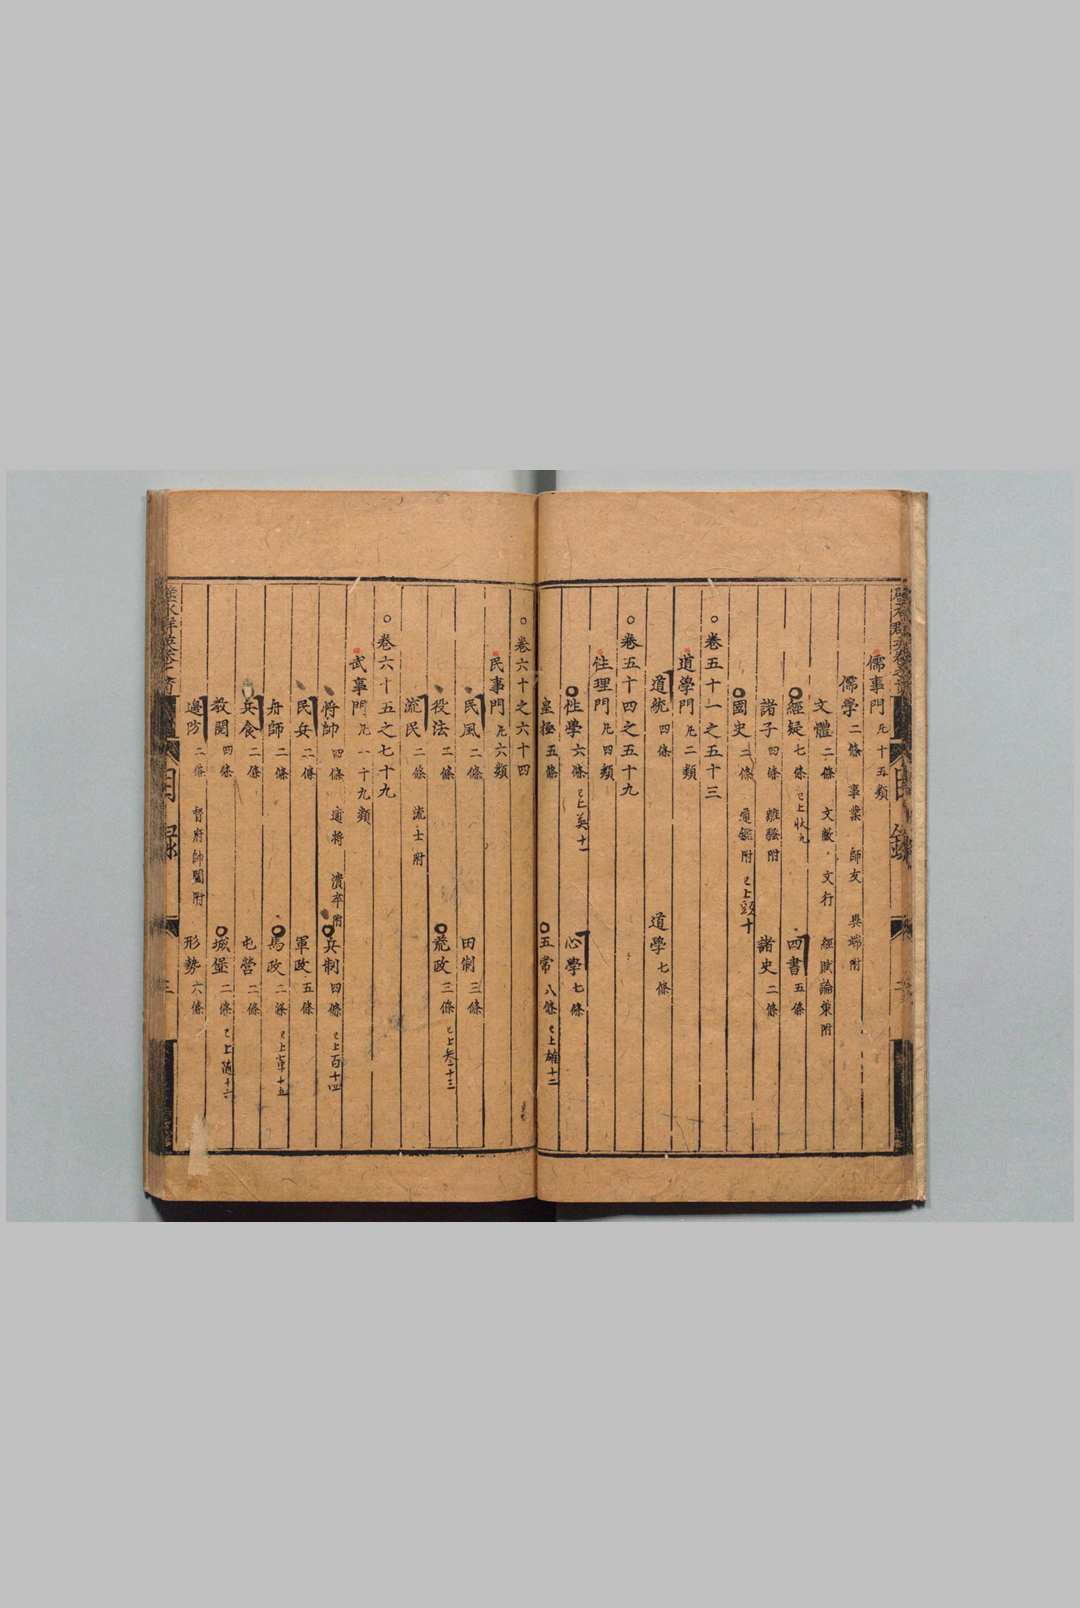 儒事門 凡十五類
儒學 二條 事業 師友 異端附
文體 二條 文散 文行 經賦論策附
經疑 七條 已上狀九 四書 五條
諸子 四條 離騷附 諸史 二條
國史 二條 通鑑附 已上頭十
○卷五十一之五十三
道學門 凡二類
道統 四條 道學 七條
○卷五十四之五十九
性理門 凡四類
性學 六條 已上英十一 心學 七條
皇極 五條 五常 八條 已上雄十二
○卷六十之六十四
民事門 凡六類
民風 二條 田制 三條
役法 二條 荒政 三條 已上 十三
流民 二條 流士附
○卷六十五之七十九
武事門 凡一十九類
將帥 四條 逾將 潰卒附 兵制 四條 已上百十四
民兵 二條 軍政 五條
舟師 二條 馬政 二條 已上 十五
兵食 二條 屯營 二條
教閱 四條 城堡 二條 已上隨十六
邊防 二條 督府帥閫附 形勢 六條
目錄